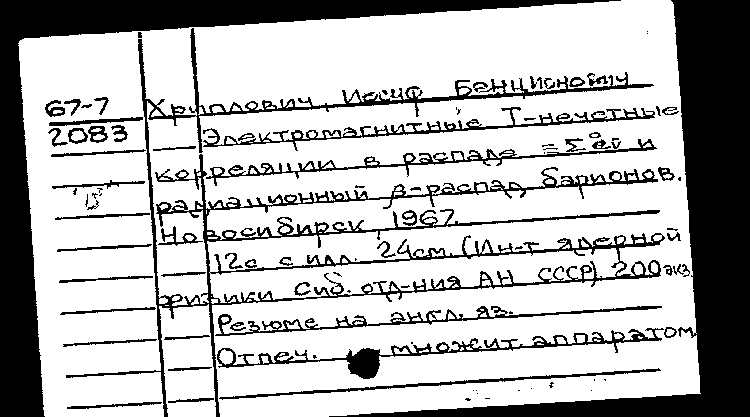 67-7 Хриплович, Иосиф Бенционович
2083 Электромагнитные Т-нечетные
корреляции в распаде и
радиационный β-распад барионов.
Новосибирск, 1967.
12с. с илл. 24см. (Ин-т ядерной
физики Сиб. отд-ния АН СССР) 200 экз.
Резюме на англ. яз.
Отпеч. множит. аппаратом